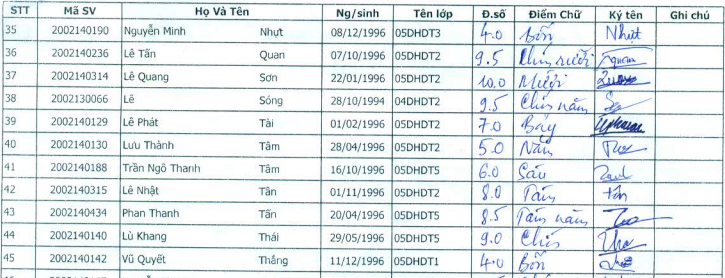 STT Mã SV Họ Và Tên Ng/sinh Tên lớp Đ.số Điểm Chữ Ký tên Ghi chú
35 2002140190 Nguyễn Minh Nhựt 08/12/1996 05DHDT3 4.0 Bốn Nhựt
36 2002140236 Lê Tấn Quan 07/10/1996 05DHDT2 9.5 Chín rưỡi Quan
37 2002140314 Lê Quang Sơn 22/01/1996 05DHDT2 10.0 Mười
38 2002130066 Lê Sóng 28/10/1994 04DHDT2 9.5 Chín năm
39 2002140129 Lê Phát Tài 01/02/1996 05DHDT2 7.0 Bảy
40 2002140130 Lưu Thành Tâm 28/04/1996 05DHDT2 5.0 Năm
41 2002140188 Trần Ngô Thanh Tâm 16/10/1996 05DHDT5 6.0 Sáu
42 2002140315 Lê Nhật Tân 01/11/1996 05DHDT2 8.0 Tám Tân
43 2002140434 Phan Thanh Tấn 20/04/1996 05DHDT5 8.5 Tám năm
44 2002140140 Lù Khang Thái 29/05/1996 05DHDT5 9.0 Chín
45 2002140142 Vũ Quyết Thắng 11/12/1996 05DHDT1 4.0 Bốn